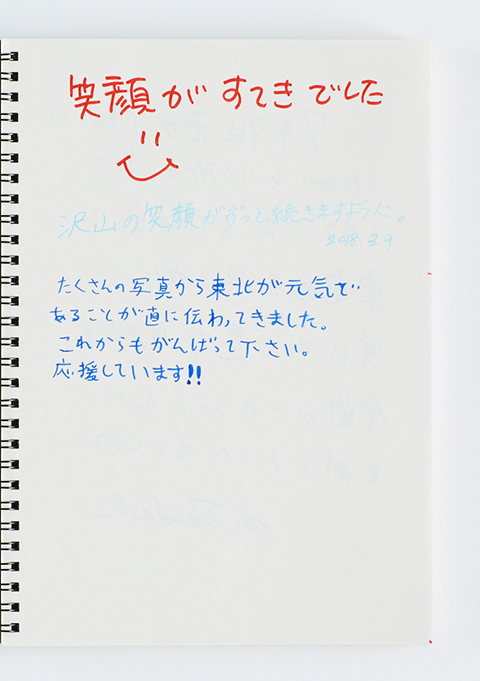 笑顔がすてきでした
沢山の笑顔がずっと続きますように。
2018.3.9
たくさんの写真から東北が元気で
あることが直に伝わってきました。
これからもがんばって下さい。
応援しています!!